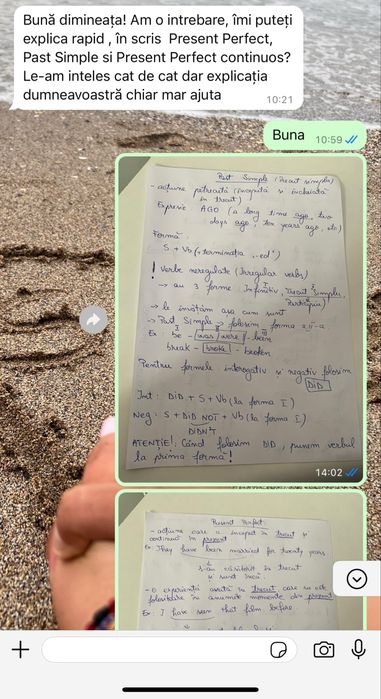 Bună dimineața! Am o intrebare, îmi puteți
explica rapid , în scris Present Perfect,
Past Simple si Present Perfect continuos?
Le-am inteles cat de cat dar explicația
dumneavoastră chiar mar ajuta
10:21
Buna
10:59
Past Simple (trecut simplu)
- acțiune petrecută (începută și încheiată
în trecut)
Expresie AGO (a long time ago, two
days ago, ten years ago, etc)
Formă:
S + Vb (+ terminația "-ed")
! Verbe neregulate (Irregular verbs)
→ au 3 forme: Infinitiv, Trecut Simplu,
Participiu)
→ le învățăm așa cum sunt
→ Past Simple → folosim forma a II-a
I II III
Ex: be - was/were - been
break - broke - broken
Pentru formele interogativ și negativ folosim
DID
Int: DID + S + Vb (la forma I)
Neg: S + DID NOT + Vb (la forma I)
DIDN'T
ATENȚIE!: Când folosim DID, punem verbul
la prima formă!
14:02
Present Perfect
- acțiune care a început în trecut și
continuă în prezent
Ex: They have been married for twenty years
s-au căsătorit în trecut
și sunt încă
- o experiență avută în trecut care
folositoare în anumite momente din prezent
Ex. I have seen that film before.